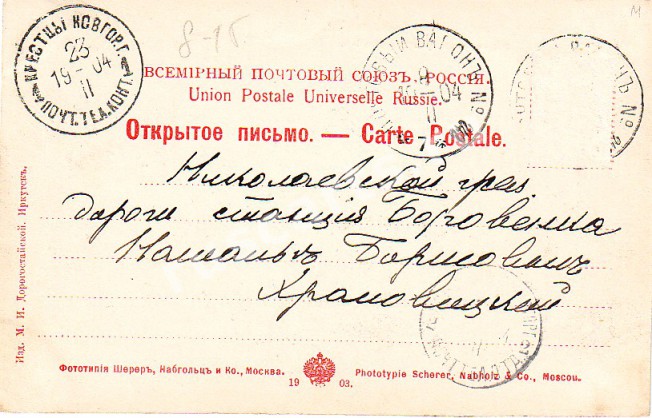 КРЕСТЦЫ НОВГОР.Г.
23
19-04
II
ПОЧТ.ТЕЛ.КОНТ.
ВАГОНЪ №
9
04
II
7
ВСЕМІРНЫЙ ПОЧТОВЫЙ СОЮЗЪ. РОССІЯ.
Union Postale Universelle Russie.
Открытое письмо. — Carte Postale.
Николаевской
дороги станція Боровенка
Борисовичъ
Храповицкой
Изд. М. И. Дорогостайской. Иркутскъ.
Фототипія Шереръ, Набгольцъ и Ко., Москва.
19 03.
Phototypie Scherer, Nabholz & Co., Moscou.